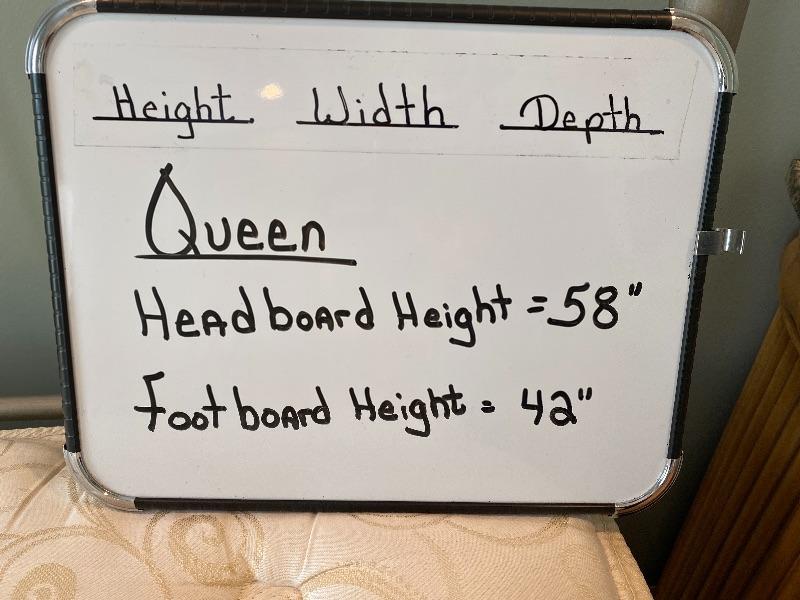 Height Width Depth
Queen
Headboard Height = 58"
Footboard Height = 42"